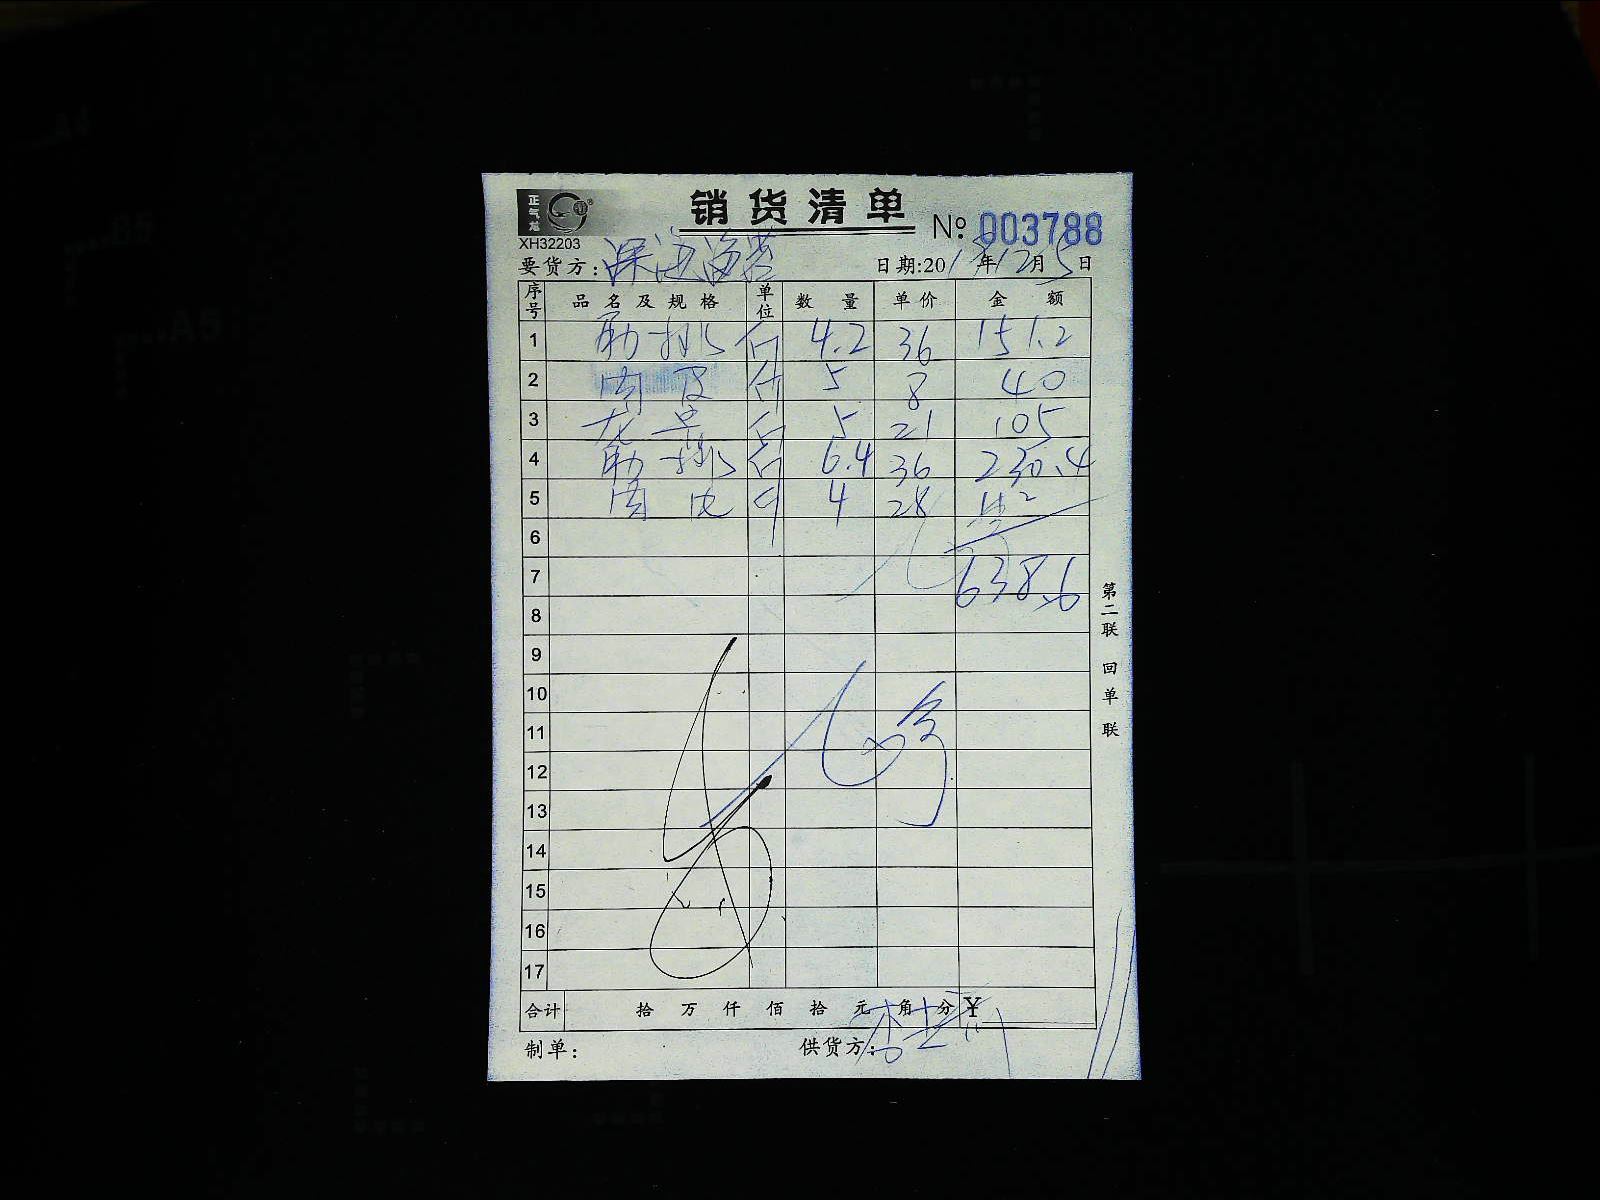 正气龙
销货清单
No: 003788
XH32203
要货方: 深 海
日期:201 年12月5日
序号 品名及规格 单位 数量 单价 金额
1 肋排 斤 4.2 36 151.2
2 肉皮 斤 5 8 40
3 龙骨 斤 5 21 105
4 肋排 斤 6.4 36 230.4
5 肉 斤 4 28 112
6
7 638.6
8
9
10
11
12
13
14
15
16
17
第二联 回单联
合计 拾 万 仟 佰 拾 元 角 分 ¥
制单: 供货方: 李